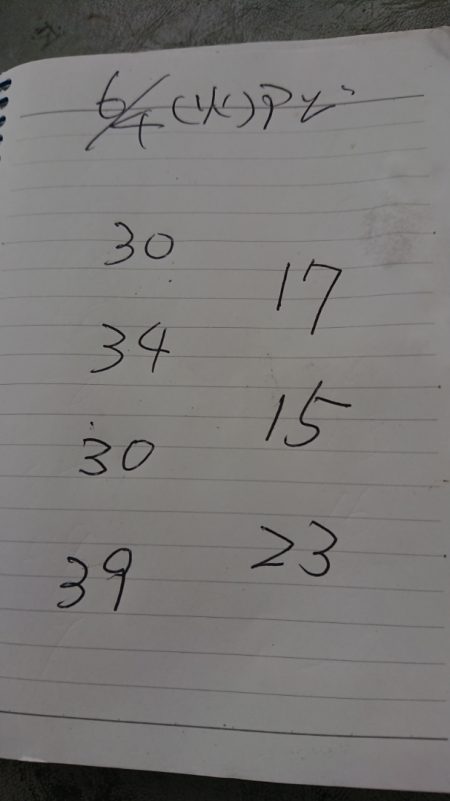 6/4(火)アジ
30
17
34
15
30
23
39